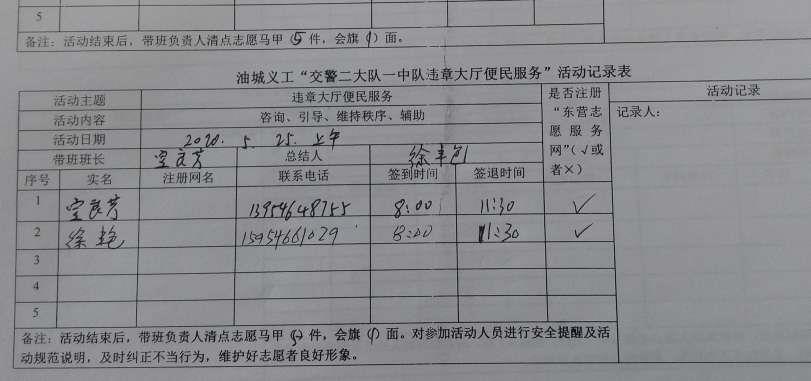 5
备注：活动结束后，带班负责人清点志愿马甲（5件，会旗（1）面。
油城义工“交警二大队一中队违章大厅便民服务”活动记录表
活动主题 违章大厅便民服务 是否注册“东营志愿服务网”（√或者×） 活动记录
活动内容 咨询、引导、维持秩序、辅助 记录人：
活动日期 2020.5.25.上午
带班班长 良芳 总结人 徐
序号 实名 注册网名 联系电话 签到时间 签退时间
1 良芳 13954648755 8:00 11:30 ✓
2 徐艳 15954661029 8:00 11:30 ✓
3
4
5
备注：活动结束后，带班负责人清点志愿马甲（5）件，会旗（1）面。对参加活动人员进行安全提醒及活
动规范说明，及时纠正不当行为，维护好志愿者良好形象。